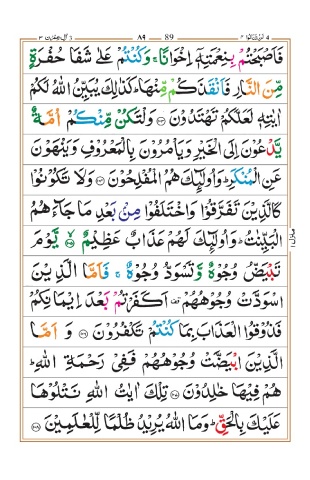 لن تنالوا ٤ ٨٩ 89 اٰل عمرٰن ٣
فَاَصْبَحْتُمْ بِنِعْمَتِهٖۤ اِخْوَانًا ۚ وَكُنْتُمْ عَلٰى شَفَا حُفْرَةٍ
مِّنَ النَّارِ فَاَنْقَذَكُمْ مِّنْهَا ؕ كَذٰلِكَ يُبَيِّنُ اللّٰهُ لَكُمْ
اٰيٰتِهٖ لَعَلَّكُمْ تَهْتَدُوْنَ ﴿۱۰۳﴾ وَلْتَكُنْ مِّنْكُمْ اُمَّةٌ
يَّدْعُوْنَ اِلَى الْخَيْرِ وَيَاْمُرُوْنَ بِالْمَعْرُوْفِ وَيَنْهَوْنَ
عَنِ الْمُنْكَرِ ؕ وَاُولٰٓئِكَ هُمُ الْمُفْلِحُوْنَ ﴿۱۰۴﴾ وَلَا تَكُوْنُوْا
كَالَّذِيْنَ تَفَرَّقُوْا وَاخْتَلَفُوْا مِنْۢ بَعْدِ مَا جَآءَهُمُ
الْبَيِّنٰتُ ؕ وَاُولٰٓئِكَ لَهُمْ عَذَابٌ عَظِيْمٌ ﴿۱۰۵﴾ يَّوْمَ
تَبْيَضُّ وُجُوْهٌ وَّتَسْوَدُّ وُجُوْهٌ ۚ فَاَمَّا الَّذِيْنَ
اسْوَدَّتْ وُجُوْهُهُمْ ۟ اَكَفَرْتُمْ بَعْدَ اِيْمَانِكُمْ
فَذُوْقُوا الْعَذَابَ بِمَا كُنْتُمْ تَكْفُرُوْنَ ﴿۱۰۶﴾ وَاَمَّا
الَّذِيْنَ ابْيَضَّتْ وُجُوْهُهُمْ فَفِيْ رَحْمَةِ اللّٰهِ ؕ
هُمْ فِيْهَا خٰلِدُوْنَ ﴿۱۰۷﴾ تِلْكَ اٰيٰتُ اللّٰهِ نَتْلُوْهَا
عَلَيْكَ بِالْحَقِّ ؕ وَمَا اللّٰهُ يُرِيْدُ ظُلْمًا لِّلْعٰلَمِيْنَ ﴿۱۰۸﴾
منزل ١